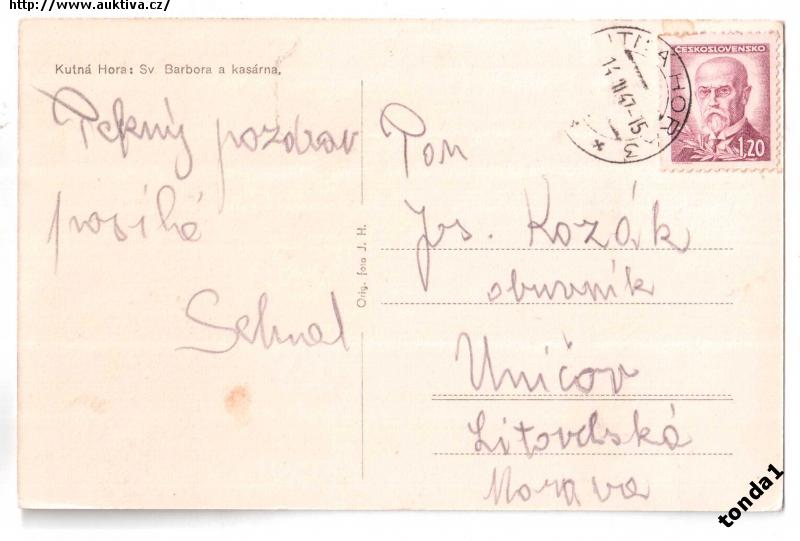 http://www.auktiva.cz/
Kutná Hora: Sv. Barbora a kasárna.
Pekný pozdrav
posílá
Sehnal
Orig. foto J. H.
ČESKOSLOVENSKO
1,20
Pan
Jos. Kozák
obuvník
Uničov
Litovelská
Morava
tonda1